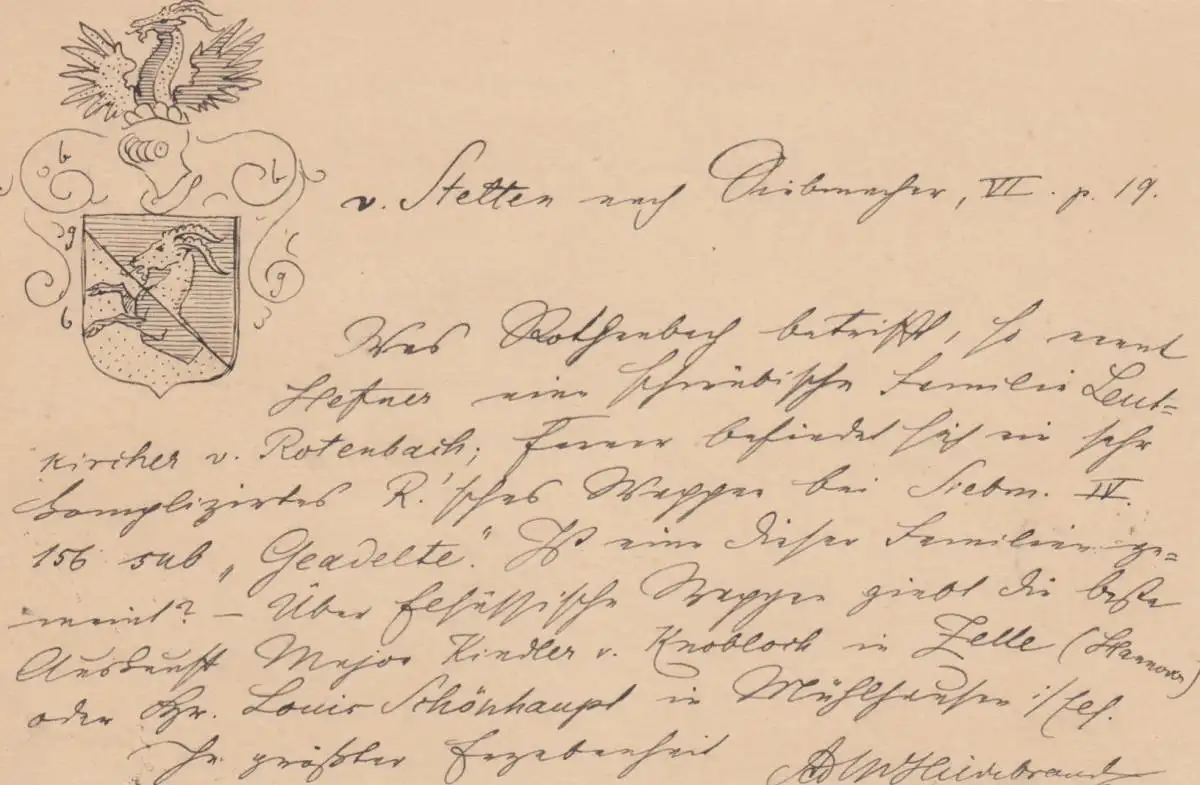 b
b
g
g
b
v. Stetten nach Siebmacher, VI. p. 19.
Was Rothenbach betrifft, so nennt
Hefner eine schwäbische Familie Leut=
kircher v. Rotenbach; ferner befindet sich ein sehr
komplizirtes R.'sches Wappen bei Siebm. IV.
156 sub „Geadelte“. Ist eine dieser Familien ge=
meint? – Über Elsässische Wappen giebt die beste
Auskunft Major Kindler v. Knobloch in Zelle (Hannover)
oder Hr. Louis Schönhaupt in Mühlhausen i/Els.
In größter Ergebenheit
Ad M Hildebrandt